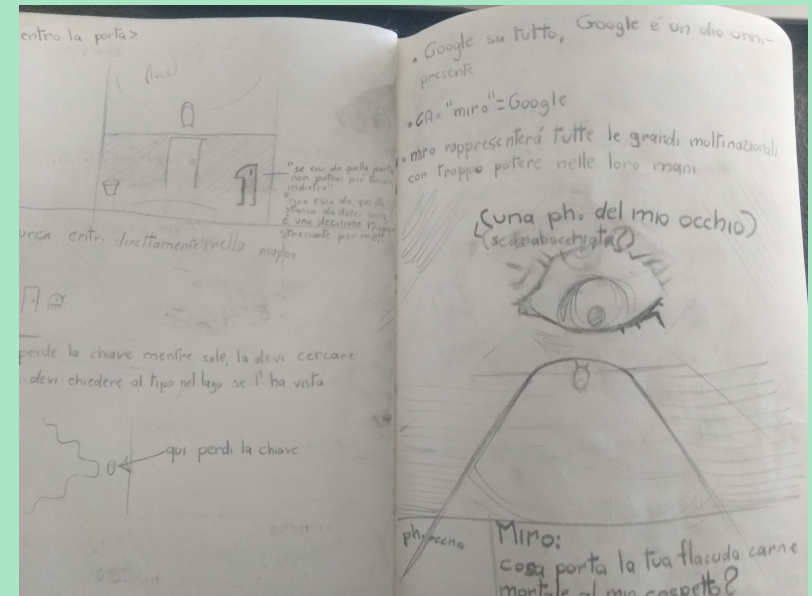 entro la porta>
(luce)
"se esci da quella porta
non potrai più tornare
indietro"
"non esco da questa
stanza da dieci anni
è una decisione troppo
stressante per me!!
entri direttamente nella mappa
perde la chiave mentre sale, la devi cercare
devi chiedere al tipo nel lago se l'ha vista
qui perdi la chiave
• Google sa tutto, Google é un dio onni-
presente
• "miro"=Google
• miro rappresenterá tutte le grandi multinazionali
con troppo potere nelle loro mani
(una ph. del mio occhio)
(scarabocchiata?)
Miro:
cosa porta la tua flaccida carne
mortale al mio cospetto?